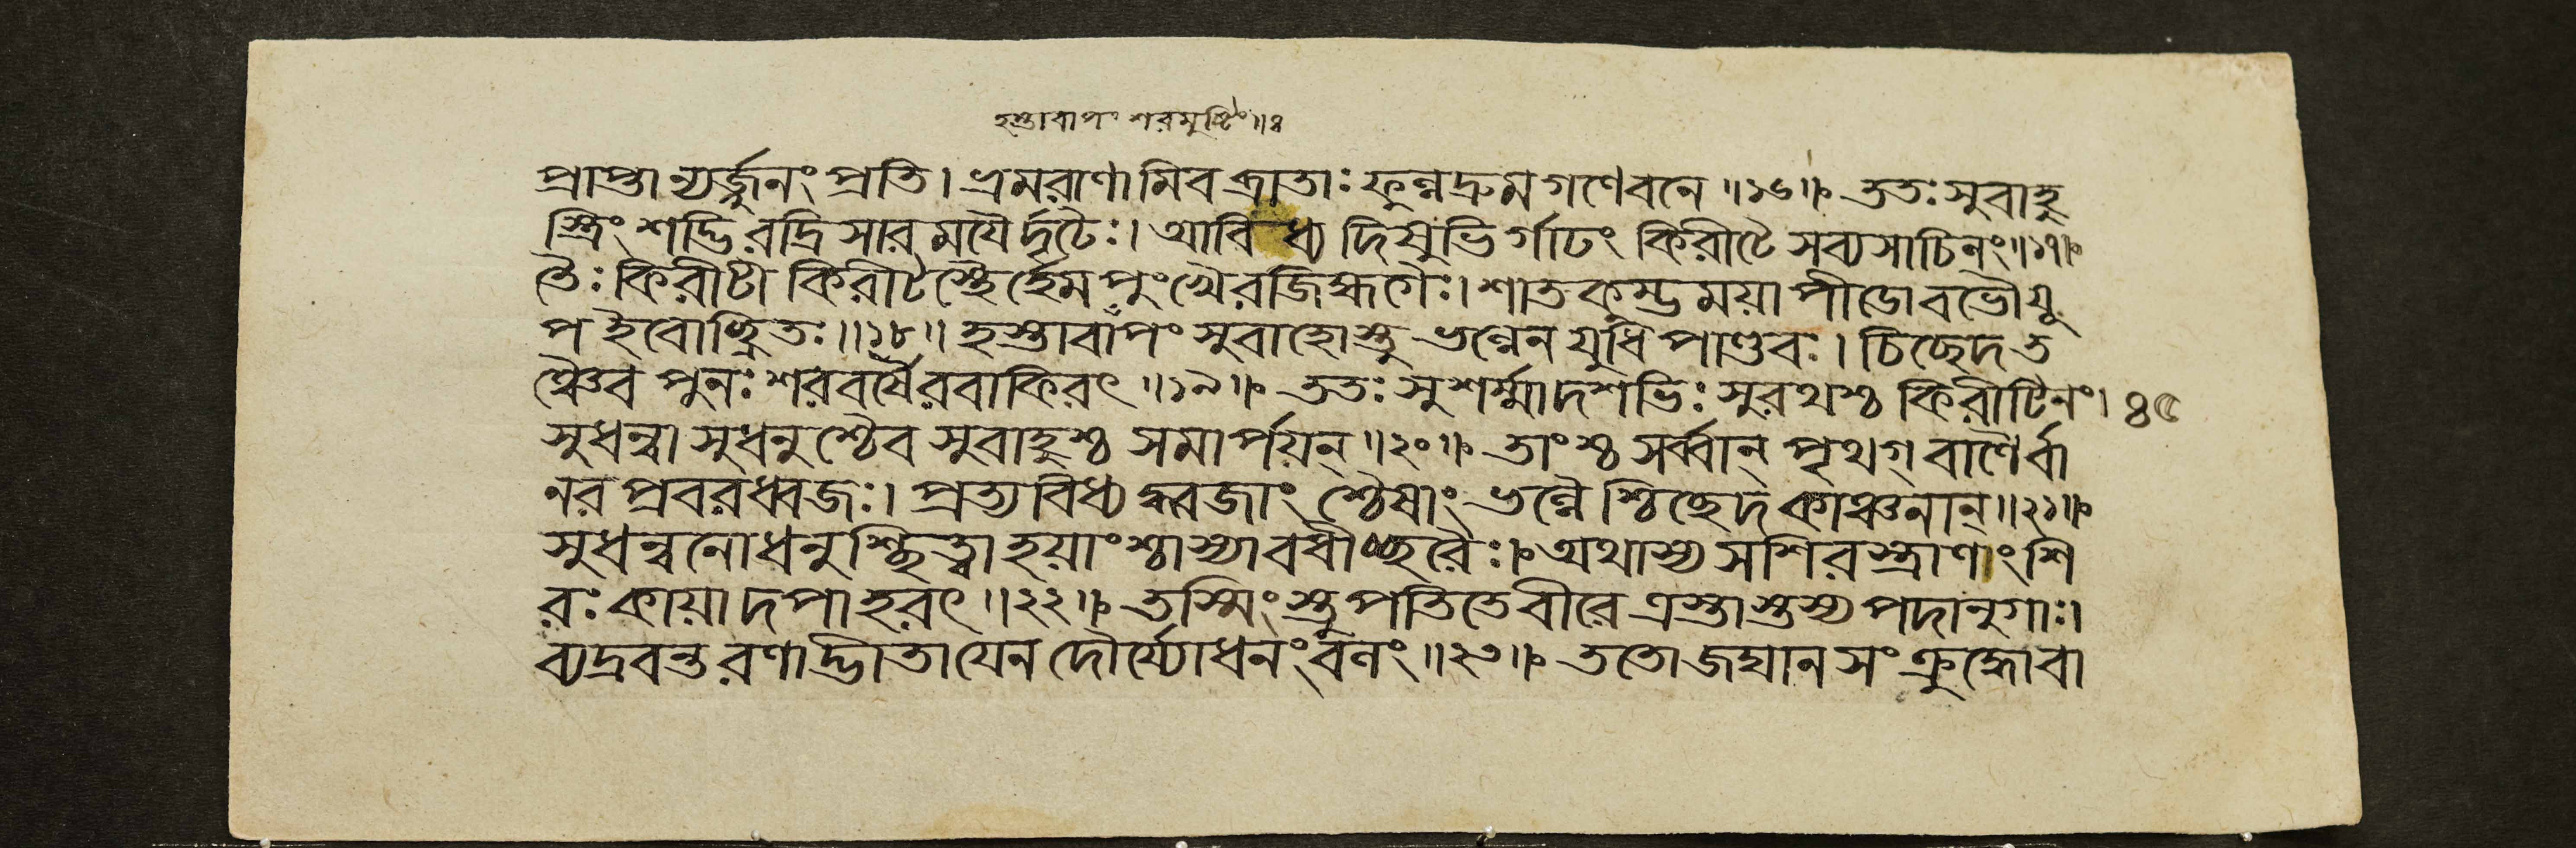 হস্তাবাপং শরমুষ্টিং॥৪
প্রাপ্তান্যর্জ্জুনং প্রতি। ভ্রমরাণামিব ব্রাতাঃ ফুল্লদ্রুমগণে বনে॥১৬॥ ততঃ সুবাহু
স্ত্রিংশদ্ভিরদ্রিসারময়ৈর্দৃঢৈঃ। আবিধ্যদিষুভির্গাঢং কিরীটে সব্যসাচিনং॥১৭॥
তৈঃ কিরীটী কিরীটস্থৈর্হেমপুংখৈরজিহ্মগৈঃ। শাতকুম্ভময়াপীডো বভৌ যূ
প ইবোচ্ছ্রিতঃ॥১৮॥ হস্তাবাপং সুবাহোস্তু ভল্লেন যুধি পাণ্ডবঃ। চিচ্ছেদ ত
ঞ্চৈব পুনঃ শরবর্ষৈরবাকিরৎ॥১৯॥ ততঃ সুশর্ম্মা দশভিঃ সুরথশ্চ কিরীটিনং। ৪৫
সুধন্বা সুধনুশ্চৈব সুবাহুশ্চ সমার্পয়ন্॥২০॥ তাংশ্চ সর্ব্বান্ পৃথগ্বাণৈর্বা
নরপ্রবরধ্বজঃ। প্রত্যবিধ্যদ্ধ্বজাংশ্চৈষাং ভল্লৈশ্চিচ্ছেদ কাঞ্চনান্॥২১॥
সুধন্বনো ধনুশ্ছিত্ত্বা হয়াংশ্চাস্যাবধীচ্ছরৈঃ। অথাস্য সশিরস্ত্রাণাং শি
রঃ কায়াদপাহরৎ॥২২॥ তস্মিংস্তু পতিতে বীরে ত্রস্তাস্তস্য পদানুগাঃ।
ব্যদ্রবন্ত রণাদ্ভীতা যেন দৌর্য্যোধনং বলং॥২৩॥ ততো জঘান সংক্রুদ্ধো বা